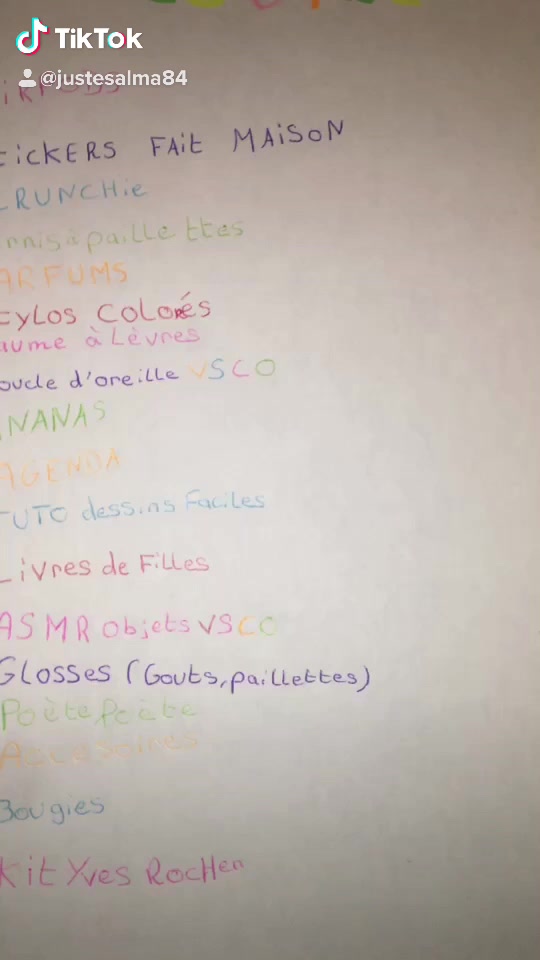 TikTok
@justesalma84
tickERS FAit MAiSoN
CRUNCHie
rnis à paillettes
ARFUMS
tylos Colorés
aume à Lèvres
oucle d'oreille VSCO
NANAS
AGENDA
TUTO dessins Faciles
Livres de Filles
ASMR objets VSCO
Glosses (Gouts, paillettes)
Poète Poète
Accesoires
Bougies
Kit Yves RocHer